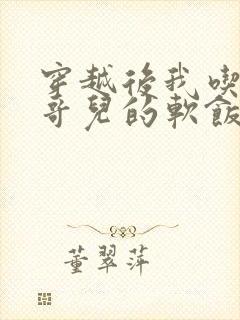 穿越後我喫
哥兒的軟飯
董翠萍